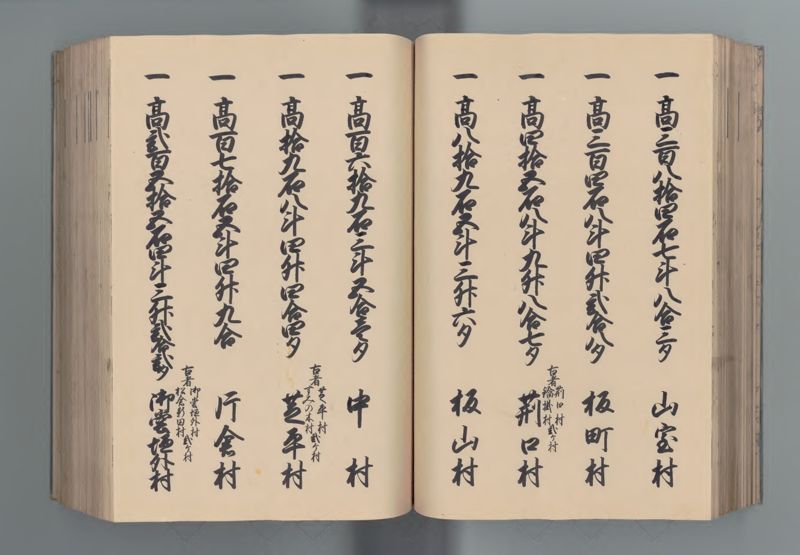 一 高三百八拾四石七斗八合三夕 山室村
一 高三百四石八斗四升弐合八夕 板町村
一 高四拾五石八斗九升八合七夕 荊口村
古者 荊口村 村弐ケ村
一 高八拾九石五斗三升六夕 板山村
一 高百六拾九石三斗五合壱夕 中村
一 高拾九石八斗四升四合四夕 芝平村
古者 芝平村 すみの木村 弐ケ村
一 高百七拾石五斗四升九合 片倉村
一 高弐百五拾五石四斗三升弐合弐夕 御堂垣外村
古者 御堂垣外村 松倉新田村 弐ケ村